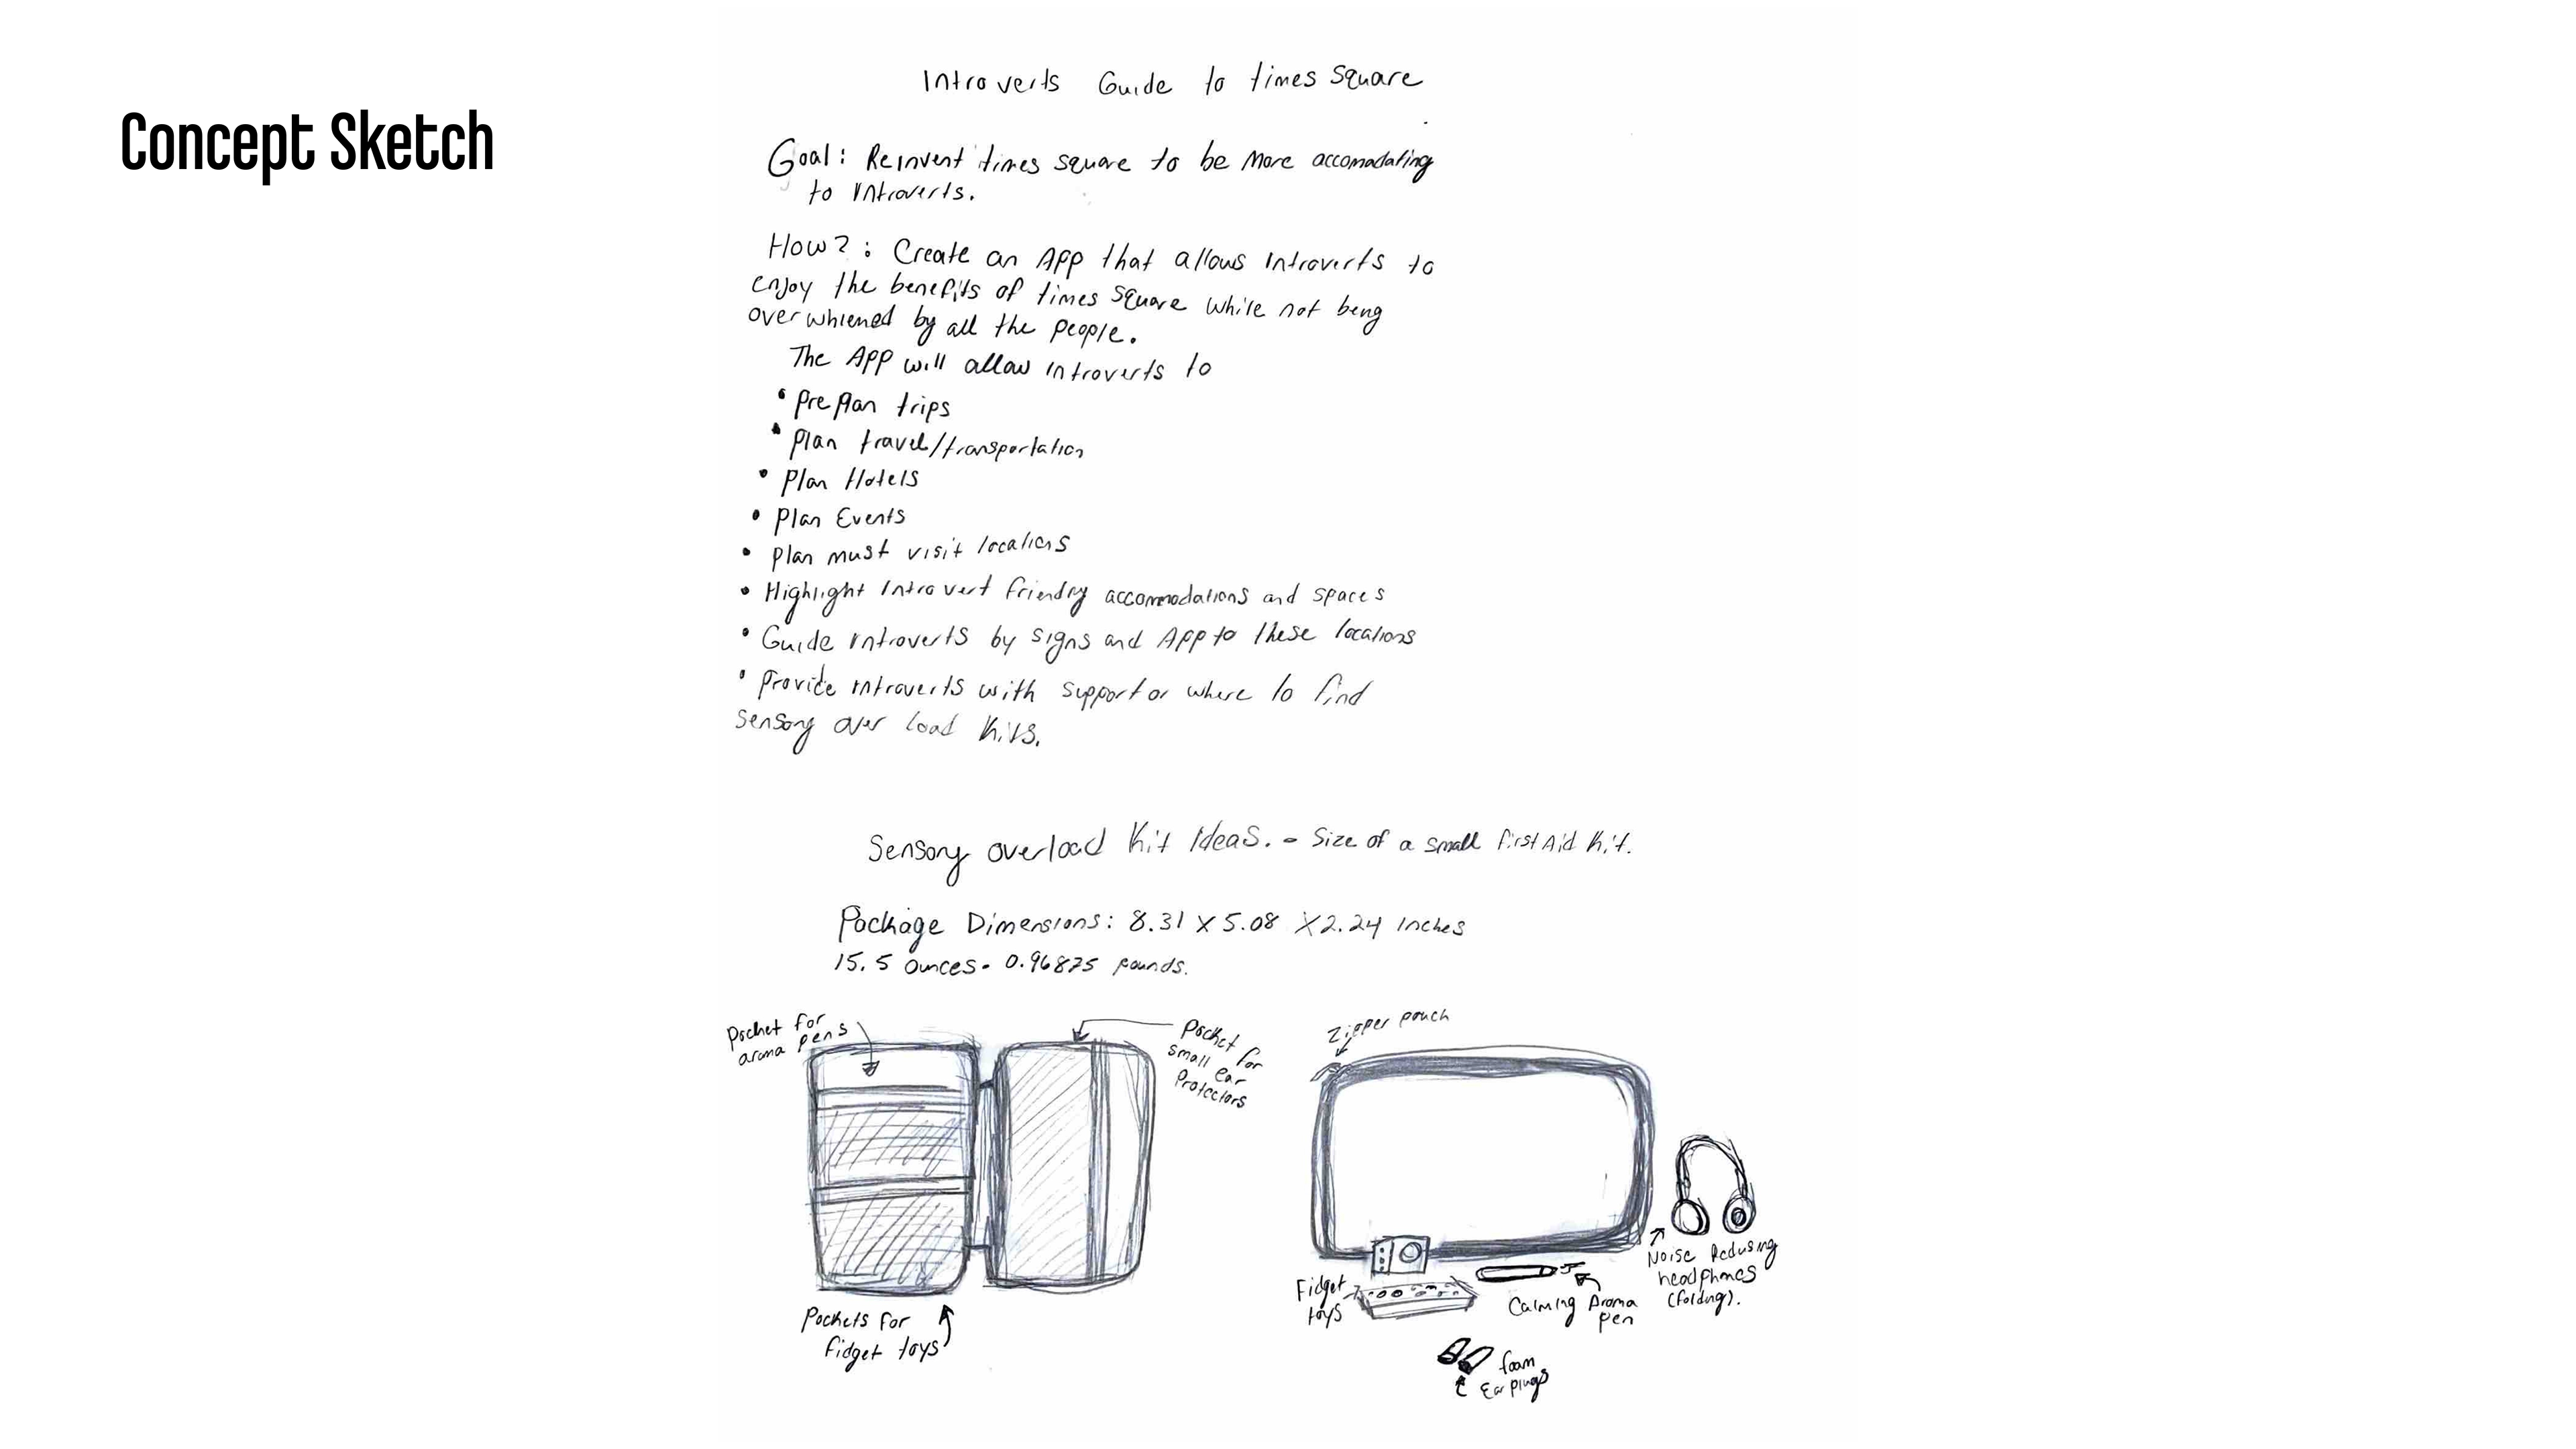 Concept Sketch
Introverts Guide to times Square
Goal: Reinvent times square to be more accomadating
to introverts.
How?: Create an App that allows introverts to
enjoy the benefits of times square while not being
overwhlemed by all the people.
The App will allow introverts to
• Preplan trips
• Plan travel/transportation
• Plan Hotels
• Plan Events
• Plan must visit locations
• Highlight Introvert friendly accommodations and spaces
• Guide introverts by signs and App to these locations
• Provide introverts with support or where to find
sensory over load kits.
Sensory overload Kit Ideas. - Size of a small first Aid Kit.
Package Dimensions: 8.31 X 5.08 X 2.24 inches
15.5 ounces - 0.96875 pounds.
Pocket for
aroma pens
Pocket for
small ear
Protectors
Pockets for
fidget toys
Zipper pouch
Noise Redusing
headphones
(folding).
Fidget
toys
Calming Aroma
pen
foam
Ear plugs